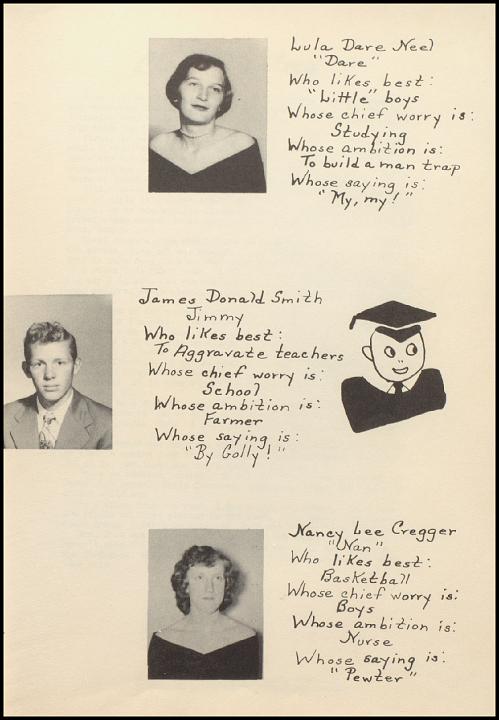 Lula Dare Neel
"Dare"
Who likes best:
"Little" boys
Whose chief worry is:
Studying
Whose ambition is:
To build a man trap
Whose saying is:
"My, my!"
James Donald Smith
Jimmy
Who likes best:
To Aggravate teachers
Whose chief worry is:
School
Whose ambition is:
Farmer
Whose saying is:
"By Golly!"
Nancy Lee Cregger
"Nan"
Who likes best:
Basketball
Whose chief worry is:
Boys
Whose ambition is:
Nurse
Whose saying is:
"Pewter"